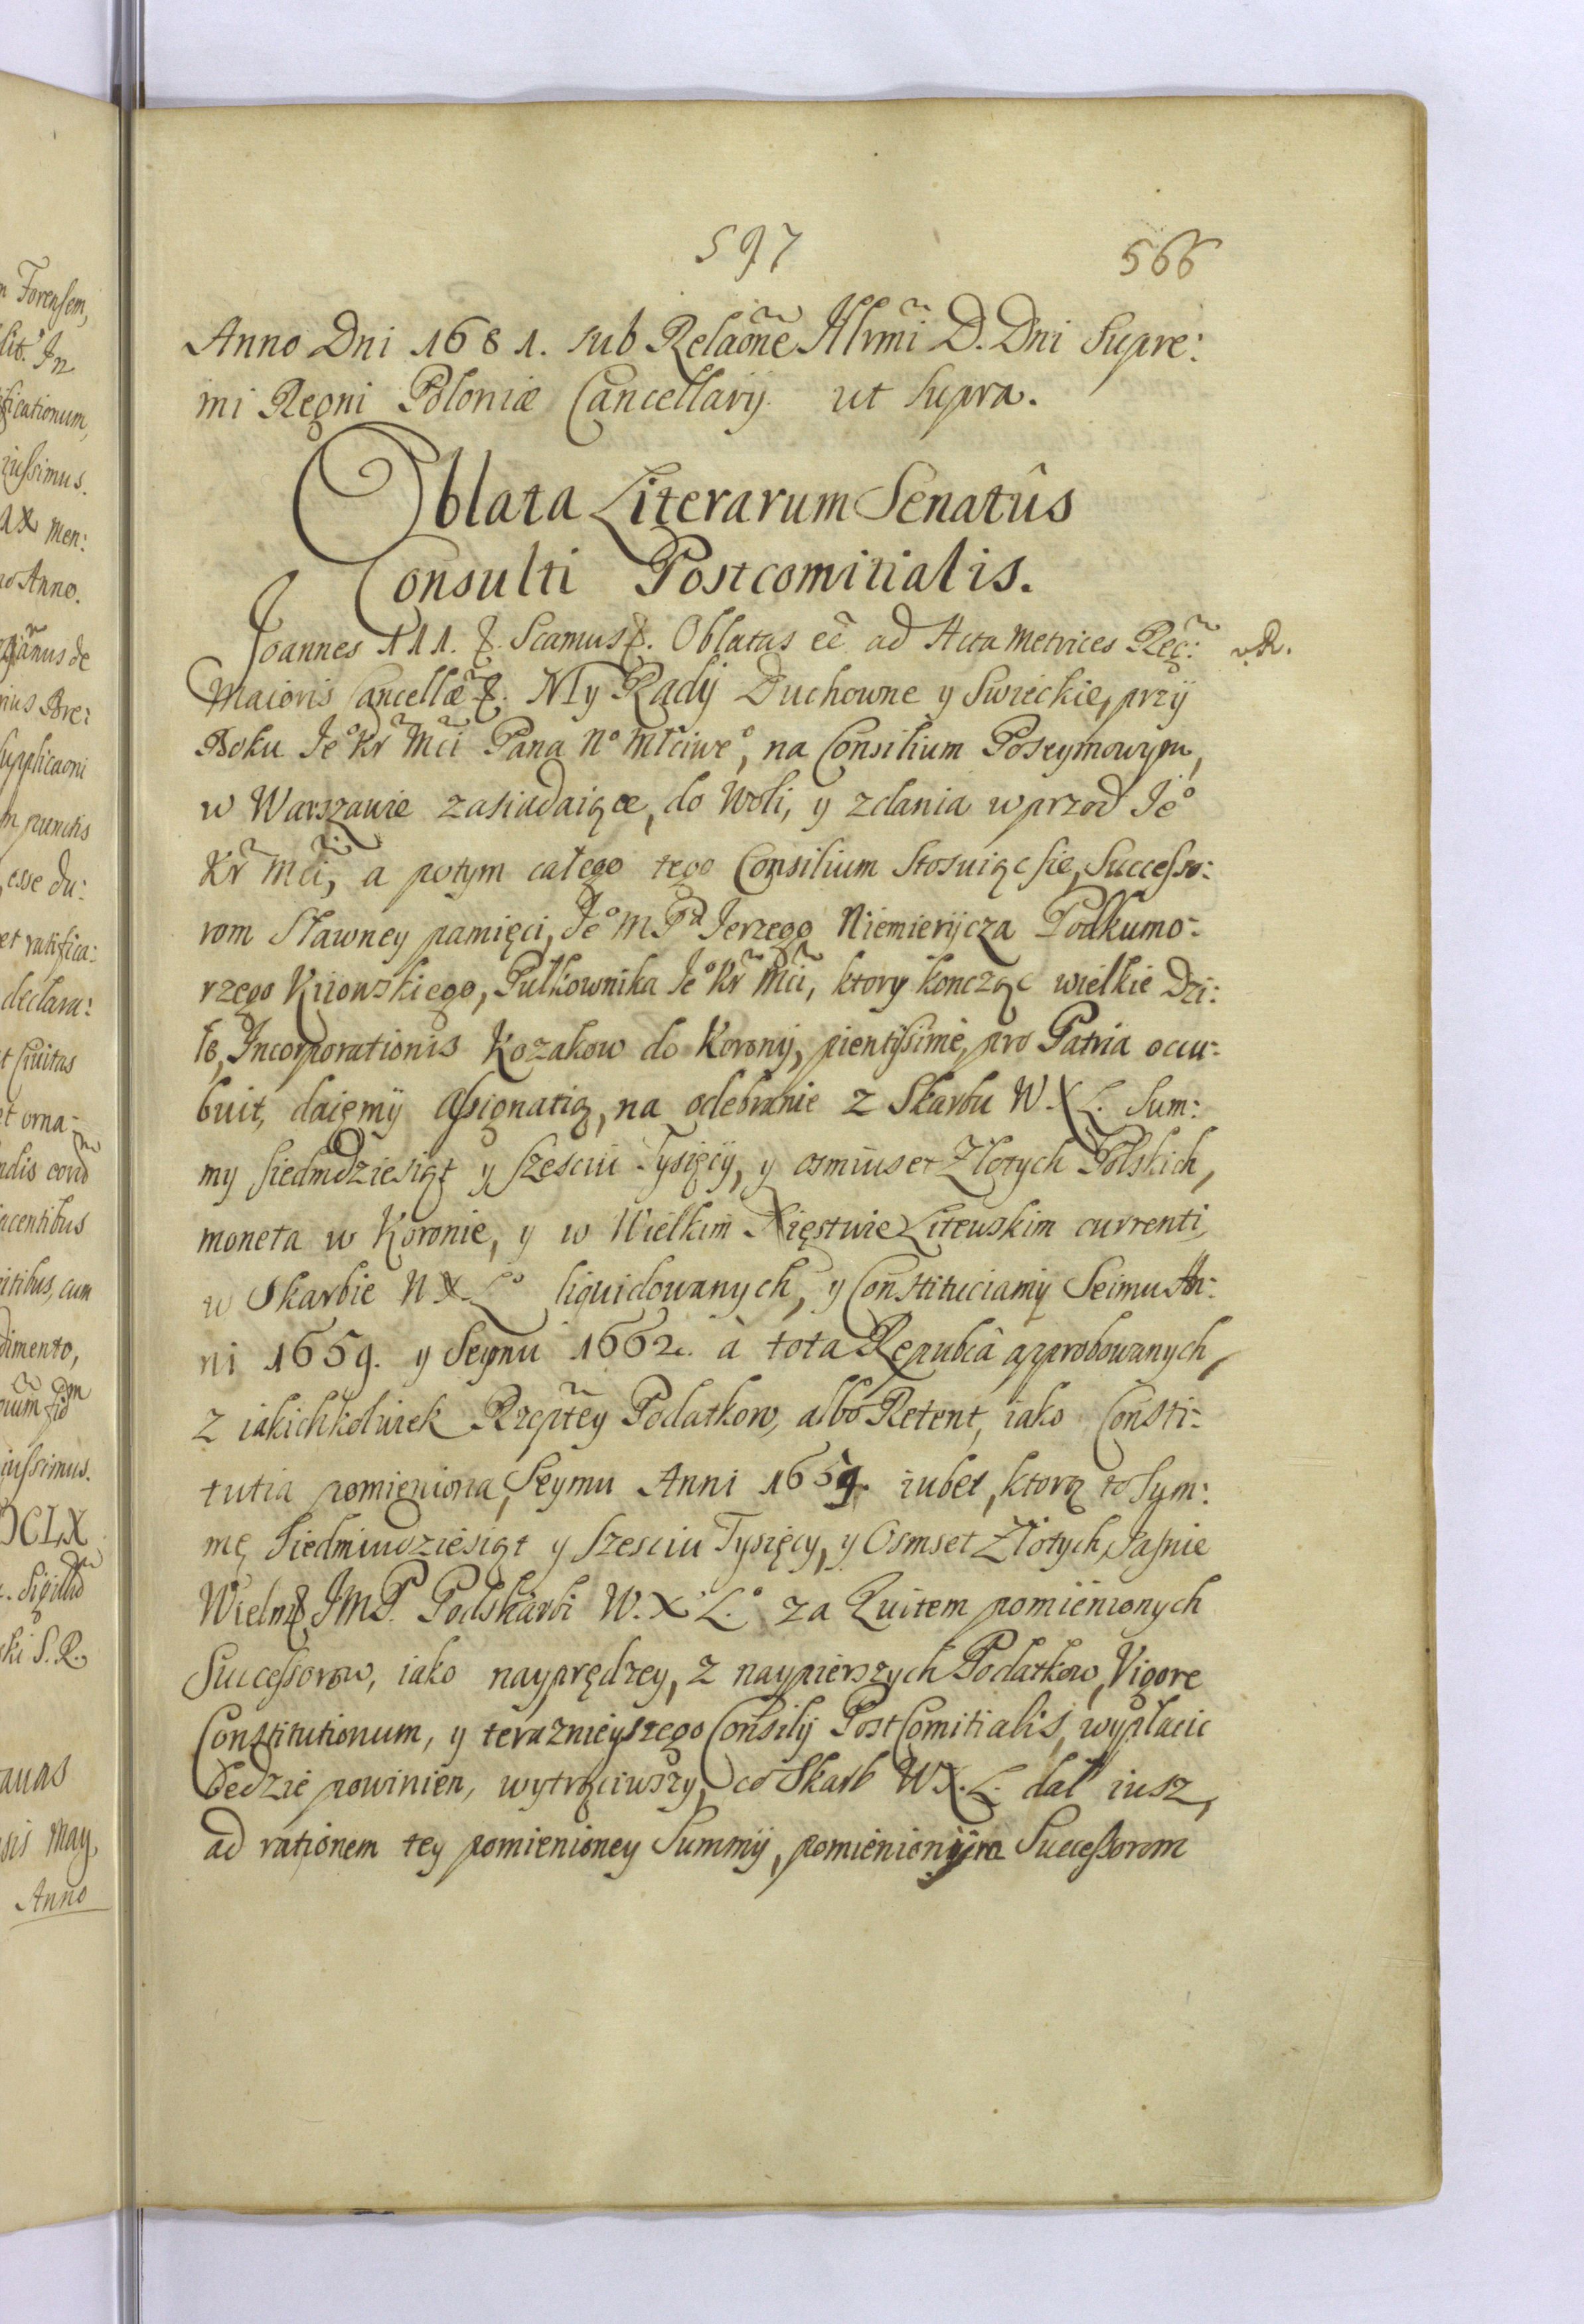 597 566
Anno Dni 1681. sub Relaõne Illr̃mi D. Dni Supre:
mi Regni Poloniæ Cancellarij ut supra.
Oblata Literarum Senatûs
Consulti Postcomitialis.
Joannes III. &. Scamus &. Oblatas eẽ ad Acta Metrices Reg: v.R.
Maioris Cancellæ &. My Rady Duchowne y Swieckie, przy
Boku Jeº Kr̃ Mci Pana Nº Młciweº, na Consilium Poseymowym,
w Warszawie zasiadaiące, do Woli, y zdania wprzod Jeº
Kr̃ Mci, a potym całego tego Consilium stosuiąc sie, Successo:
rom Sławney pamięci, Jeº M Pa Jerzego Niemierycza Podkomo:
rzego Kiiowskiego, Pułkownika Jeº Kr̃ Mci, ktory koncząc wielkie Dzi:
ło, Incorporationis Kozakow do Korony, pientissime, pro Patria occu:
buit, daiemy Assignatią, na odebranie z Skarbu W. X L. Sum:
my siedmdziesiąt y szesciu Tysięcy, y osmiuset Złotych Polskich,
moneta w Koronie, y w Wielkim Xięstwie Litewskim currenti,
w Skarbie W X Lº liquidowanych, y Constituciamy Seimu An:
ni 1659. y Seymu 1662. à tota Republicâ approbowanych,
z iakichkolwiek Rzeptey Podatkow, albo Retent, iako Consti:
tutia pomieniona, Seymu Anni 1659. iubet, ktorą to Sym:
mę Siedmiudziesiąt y Szesciu Tysięcy, y Osmset Złotych, Jasnie
Wielm& JMP. Podskarbi W. X L.º za Quitem pomienionych
Successorow, iako nayprędzey, z naypierszych Podatkow, Vigore
Constitutionum, y teraznieyszego Consilij PostComitialis, wypłacic
bedzie powinien, wytrąciwszy, co Skarb W X. L. dał iusz,
ad rationem tey pomienioney Summy, pomienionym Successorom